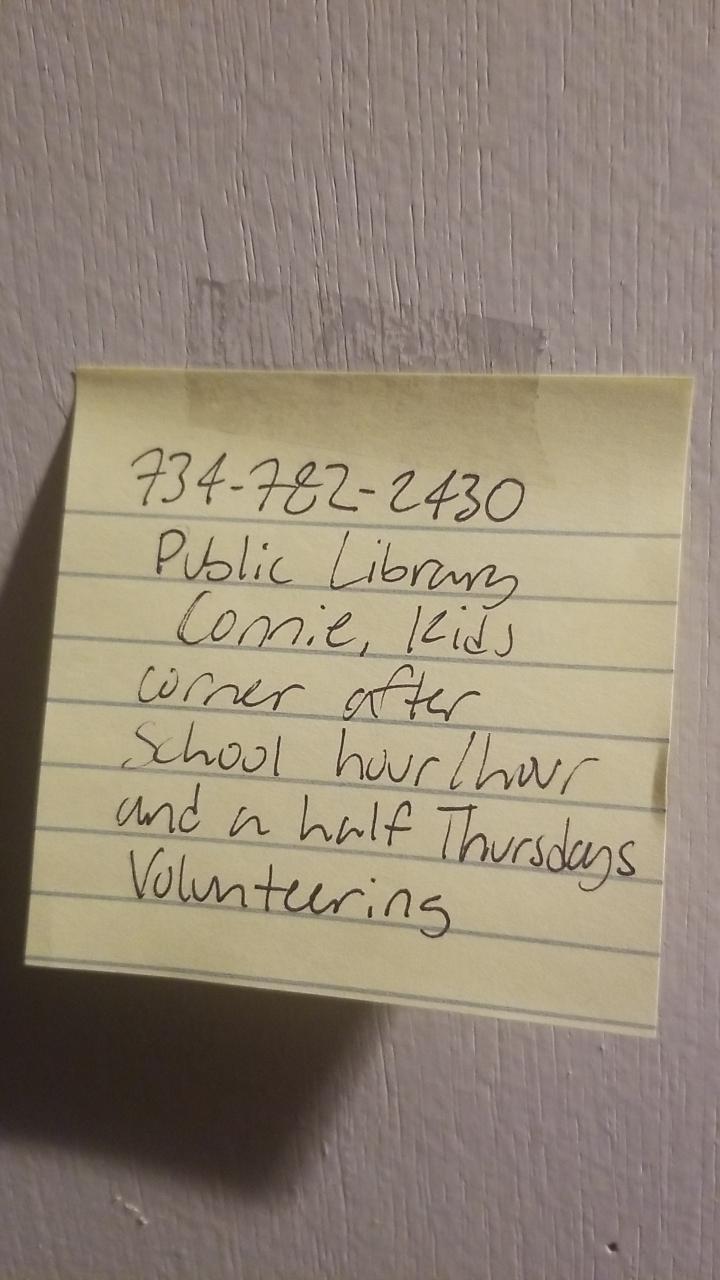 734-782-2430
Public Library
Connie, Kids
corner after
School hour/hour
and a half Thursdays
Volunteering